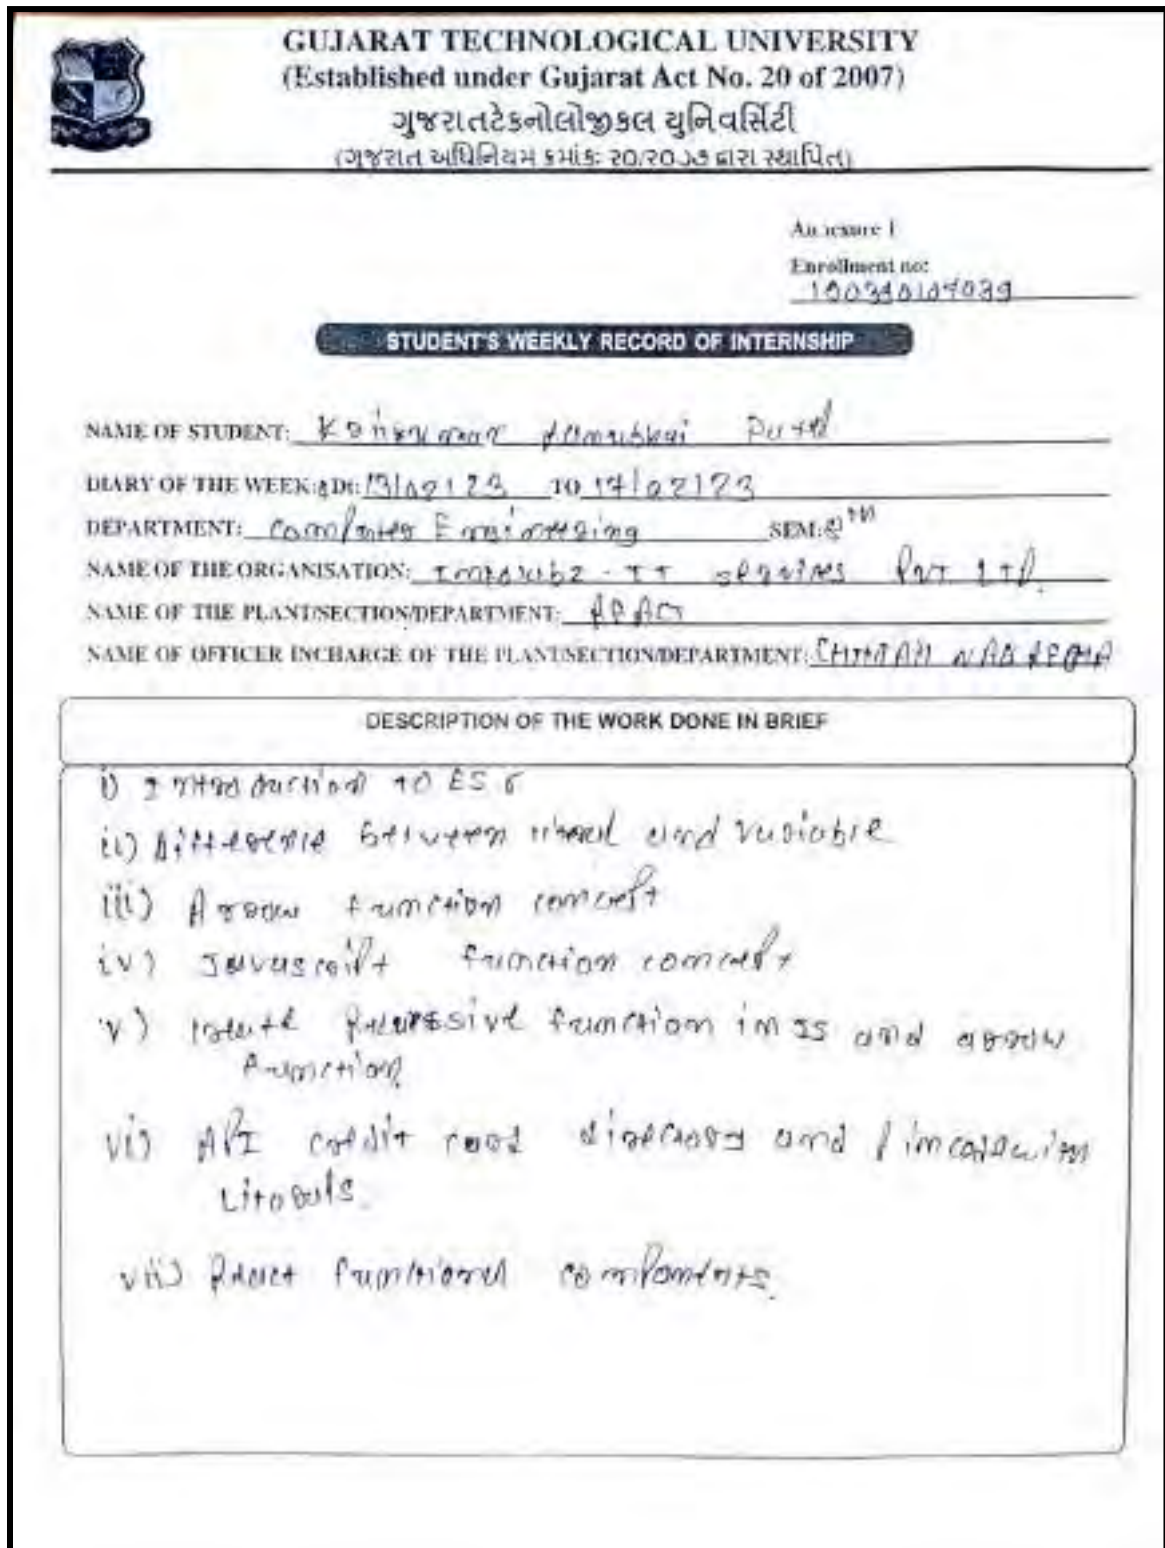 GUJARAT TECHNOLOGICAL UNIVERSITY
(Established under Gujarat Act No. 20 of 2007)
ગુજરાતટેકનોલોજીકલ યુનિવર્સિટી
(ગુજરાત અધિનિયમ ક્રમાંકઃ ૨૦/૨૦૦૭ દ્વારા સ્થાપિત)
Annexure 1
Enrollment no:
STUDENT'S WEEKLY RECORD OF INTERNSHIP
NAME OF STUDENT:
DIARY OF THE WEEK: Dt: 13/02/23 TO 17/02/23
DEPARTMENT: Computer Engineering SEM: 8TH
NAME OF THE ORGANISATION: IT services PVT LTD.
NAME OF THE PLANT/SECTION/DEPARTMENT:
NAME OF OFFICER INCHARGE OF THE PLANT/SECTION/DEPARTMENT:
DESCRIPTION OF THE WORK DONE IN BRIEF
i) Introduction to ES 6
ii) Difference between and variable
iii) Arrow function concept
iv) Javascript function concept
v) Recursive function in JS and arrow
function
vi) API credit card directory and
Literals.
vii) React functional components.